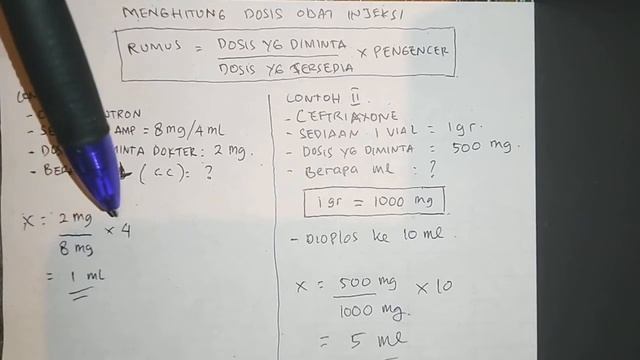 MENGHITUNG DOSIS OBAT INJEKSI
RUMUS = DOSIS YG DIMINTA / DOSIS YG TERSEDIA × PENGENCER
TRON
AMP = 8mg/4ml
MINTA DOKTER : 2 mg.
(CC) : ?
X = 2 mg / 8 mg × 4
= 1 ml
CONTOH II.
- CEFTRIAXONE
- SEDIAAN 1 VIAL = 1 gr.
- DOSIS YG DIMINTA = 500 mg.
- Berapa ml : ?
1 gr = 1000 mg
- DIOPLOS ke 10 ml.
X = 500 mg / 1000 mg. × 10
= 5 ml